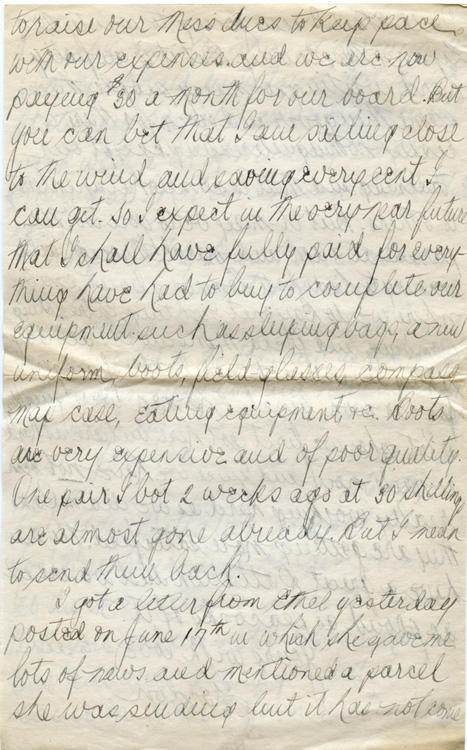 to raise our Mess dues to keep pace
with our expenses. and we are now
paying $30 a month for our board. But
you can bet that I am sailing close
to the wind and saving every cent I
can get. So I expect in the very near future
that I shall have fully paid for every-
thing have had to buy to complete our
equipment. such as sleeping bags, a new
uniform, boots, field-glasses, compass
map case, eating equipment &c. Boots
are very expensive and of poor quality.
One pair I bot 2 weeks ago at 30 shillings
are almost gone already. But I mean
to send them back.
I got a letter from Ethel yesterday
posted on June 17th in which she gave me
lots of news and mentioned a parcel
she was sending but it has not come